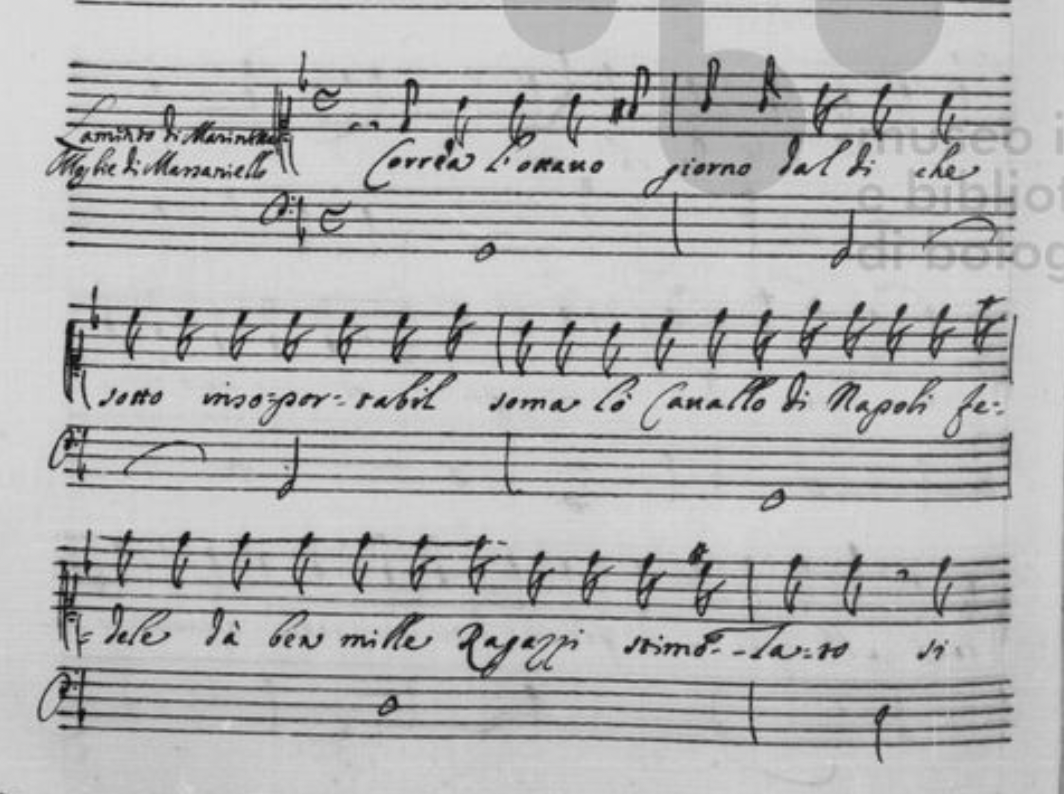 Lamento di Marinetta
Moglie di Massaniello
Correa l'ottauo giorno dal di che
sotto inso=por=tabil soma lo Cauallo di Napoli fe=
=dele da ben mille Ragazzi stimo=la=to si
museo i
e bibliot
di bolog